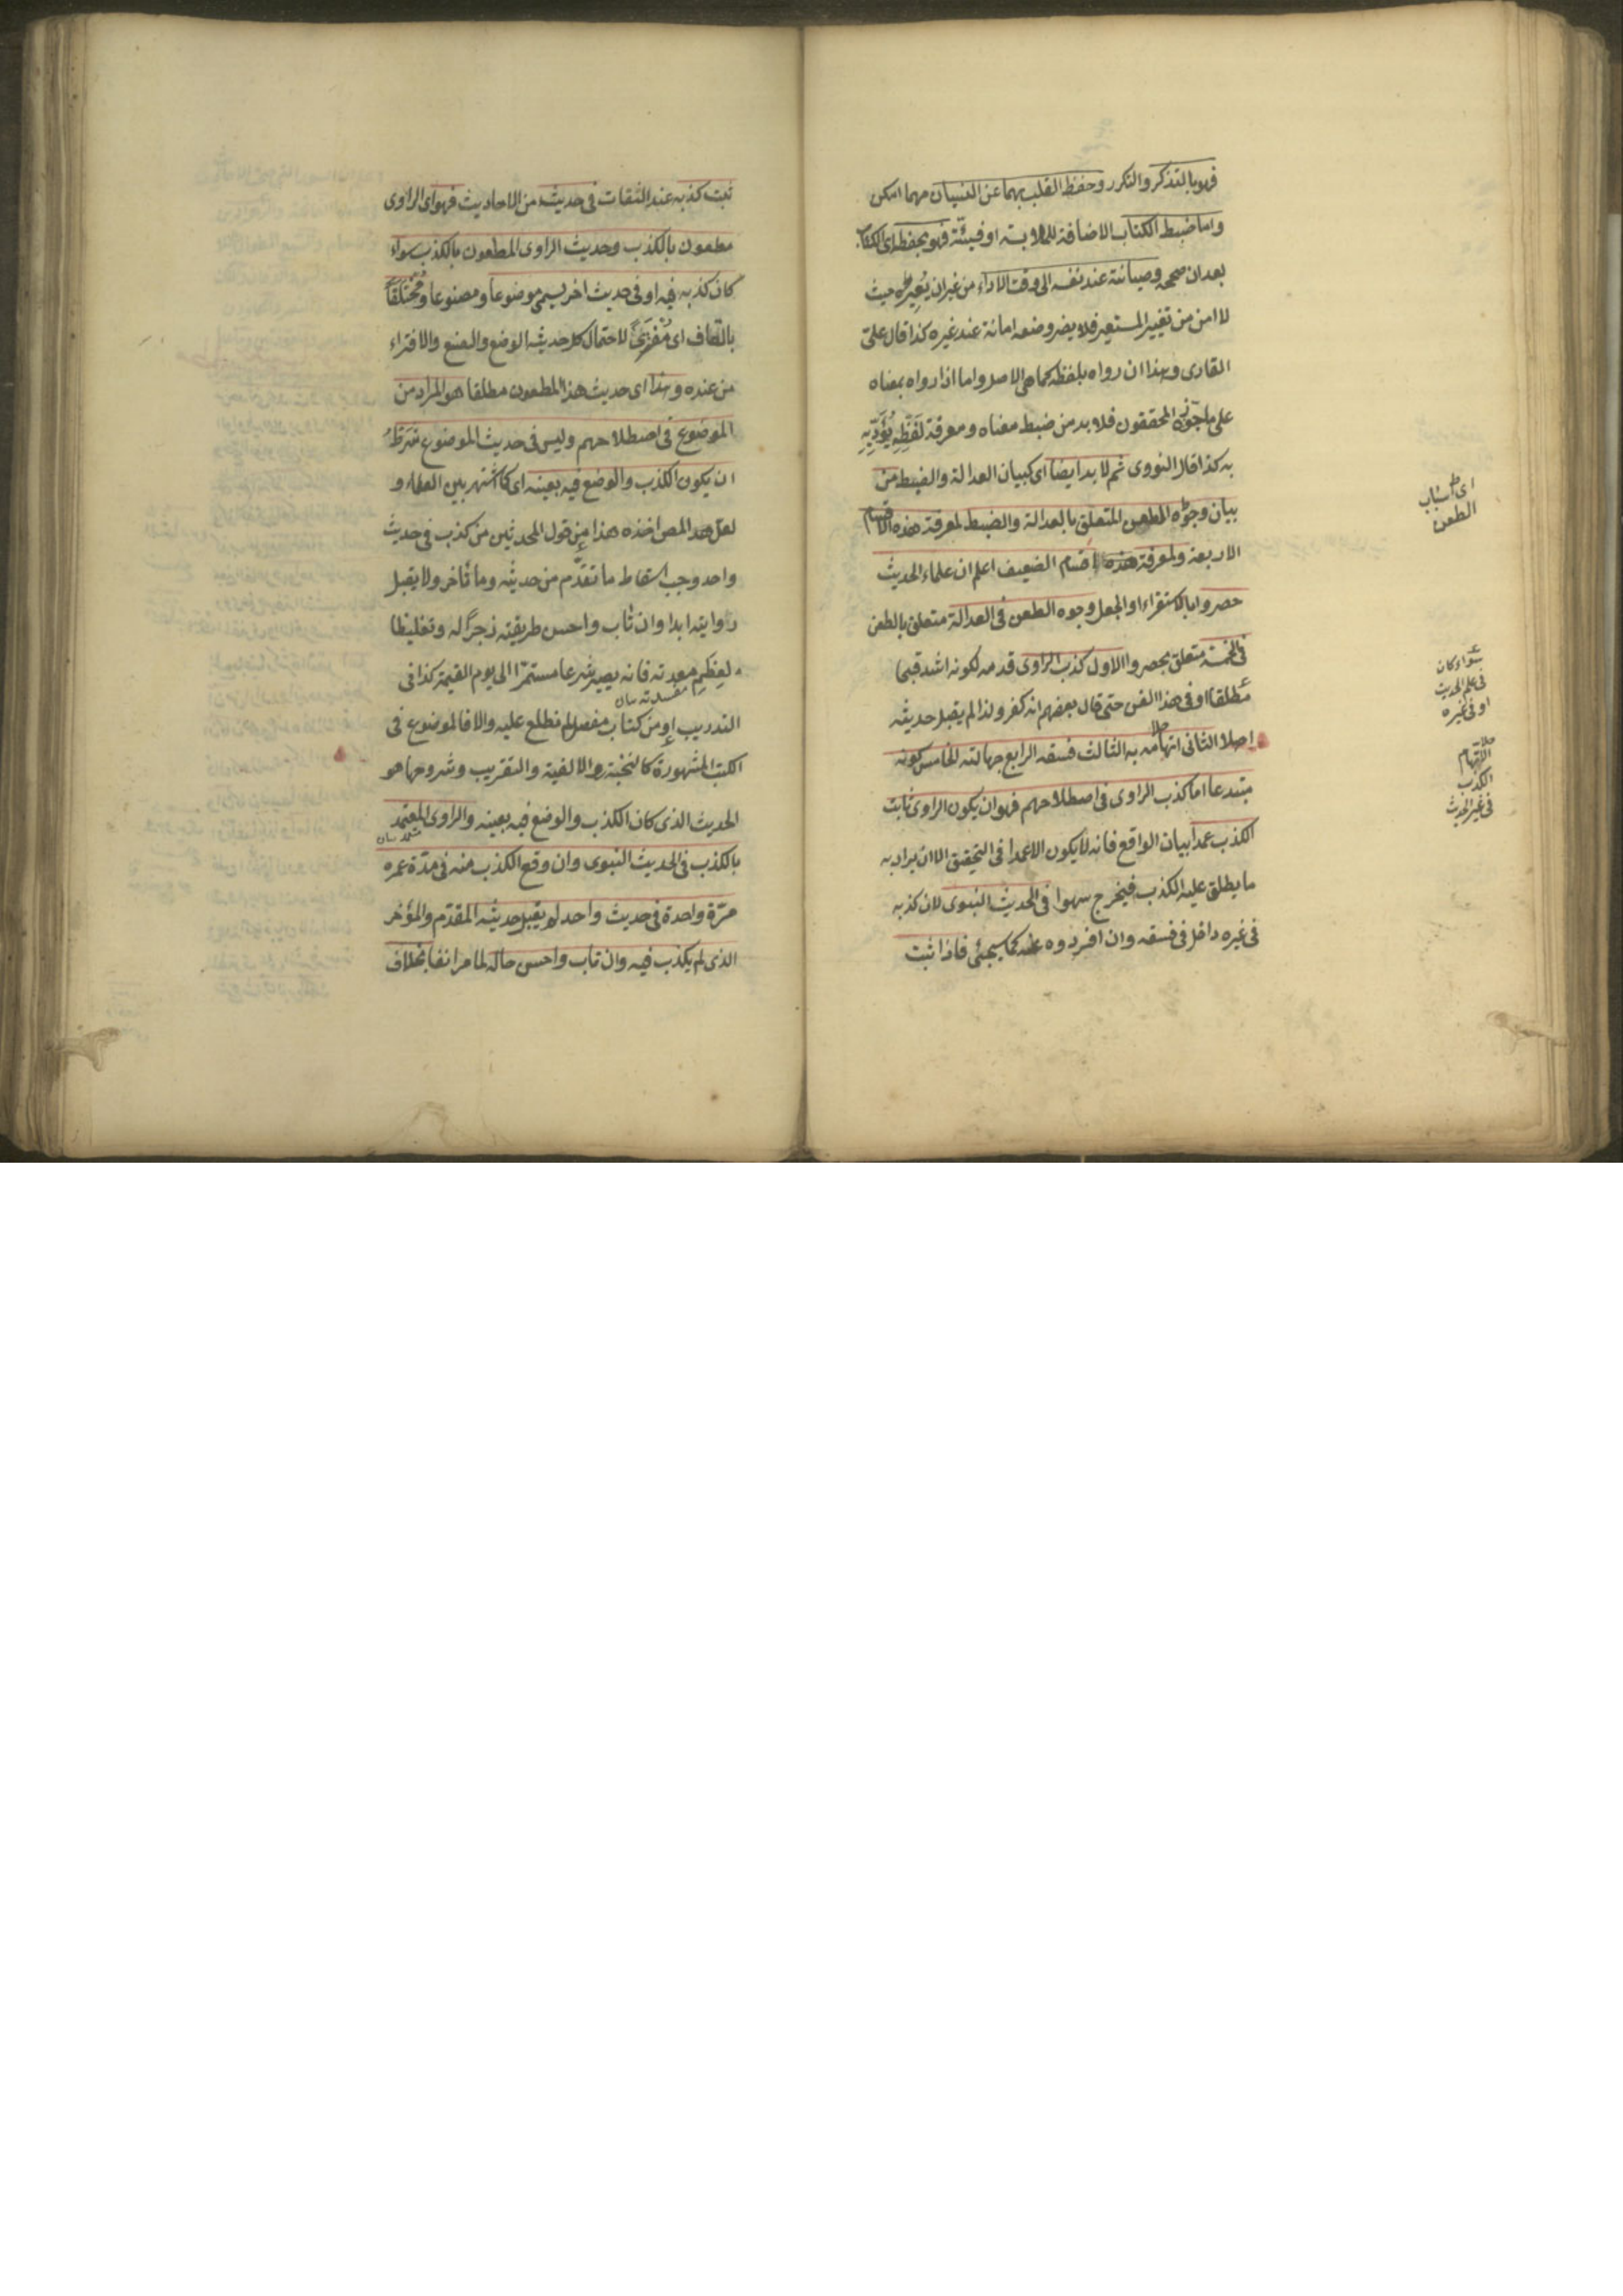 فهو بالتذكر والتكرر وحفظ القلب بهما عن النسيان مهما امكن
واما ضبط الكتاب الاضافة للملابسة او فيئته فهو بحفظه اى الكتاب
بعد ان صححه وصيانته عند نفسه الى وقت الاداء من غير ان يعيره حيث
لا امن من تغيير المستعير فلا يضر وضعه امانة عند غيره كذا قال على
القارى وهذا ان رواه بلفظه كما هى الاصل واما اذا رواه بمعناه
على ما جوزه المحققون فلا بد من ضبط معناه ومعرفة لَفْظِهِ يُؤَدِّيهِ
به كذا قال النووى ثم لا بد ايضا اى كبيان العدالة والضبط من
بيان وجوه الطعن المتعلق بالعدالة والضبط لمعرفة هذه الاقسام
اى اسباب الطعن
الاربعة ولمعرفة هذه اقسام الضعيف اعلم ان علماء الحديث
حصروا بالاستقراء او الجعل وجوه الطعن فى العدالة متعلق بالطعن
فى الخمسة متعلق بحصروا الاول كذب الراوى قدمه لكونه اشد قبحا
سواء كان فى علم الحديث او فى غيره
مطلقا او فى هذا الفن حتى قال بعضهم انه كفر ولذا لم يقبل حديثه
اصلا الثانى اتهامه به الثالث فسقه الرابع جهالته الخامس كونه
الاتهام الكذب فى غير الحديث
مبتدعا اما كذب الراوى فى اصطلاحهم فهو ان يكون الراوى ثابت
الكذب عمدا بيان الواقع فانه لا يكون الا عمدا فى التحقيق الا ان يراد به
ما يطلق عليه الكذب فيخرج سهوا فى الحديث النبوى لان كذبه
فى غيره داخل فى فسقه وان افردوه عنه كما سيجئى فاذا ثبت
ثبت كذبه عند الثقات فى حديث من الاحاديث فهو اى الراوى
مطعون بالكذب وحديث الراوى المطعون بالكذب سواء
كان كذبه فيه او فى حديث اخر يسمى موضوعا ومصنوعا ومُخْتَلَقًا
بالقاف اى مُفْتَرًى لاحتمال كل حديثه الوضع والصنع والافتراء
من عنده وهذا اى حديث هذا المطعون مطلقا هو المراد من
الموضوع فى اصطلاحهم وليس فى حديث الموضوع شرط
ان يكون الكذب والوضع فيه بعينه اى كما اشتهر بين العلماء و
لعل المص اخذه هذا من قول المحدثين من كذب فى حديث
واحد وجب اسقاط ما تقدّم من حديثه وما تأخر ولا يقبل
روايته ابدا وان تاب واحسن طريقته زجرًا له وتغليظا
لعظم مفسدته فانه يصير شرعا مستمرّا الى يوم القيمة كذا فى
التدريب او من كتاب مفصل لم نطلع عليه والا فالموضوع فى
الكتب المشهورة كالنخبة والالفية والتقريب وشروحها هو
الحديث الذى كان الكذب والوضع فيه بعينه والراوى المعتمد
بالكذب فى الحديث النبوى وان وقع الكذب منه فى مدّة عمره
مرّة واحدة فى حديث واحد لم يقبل حديثه المقدّم والمؤخر
الذى لم يكذب فيه وان تاب واحسن حاله لما مر انفا بخلاف